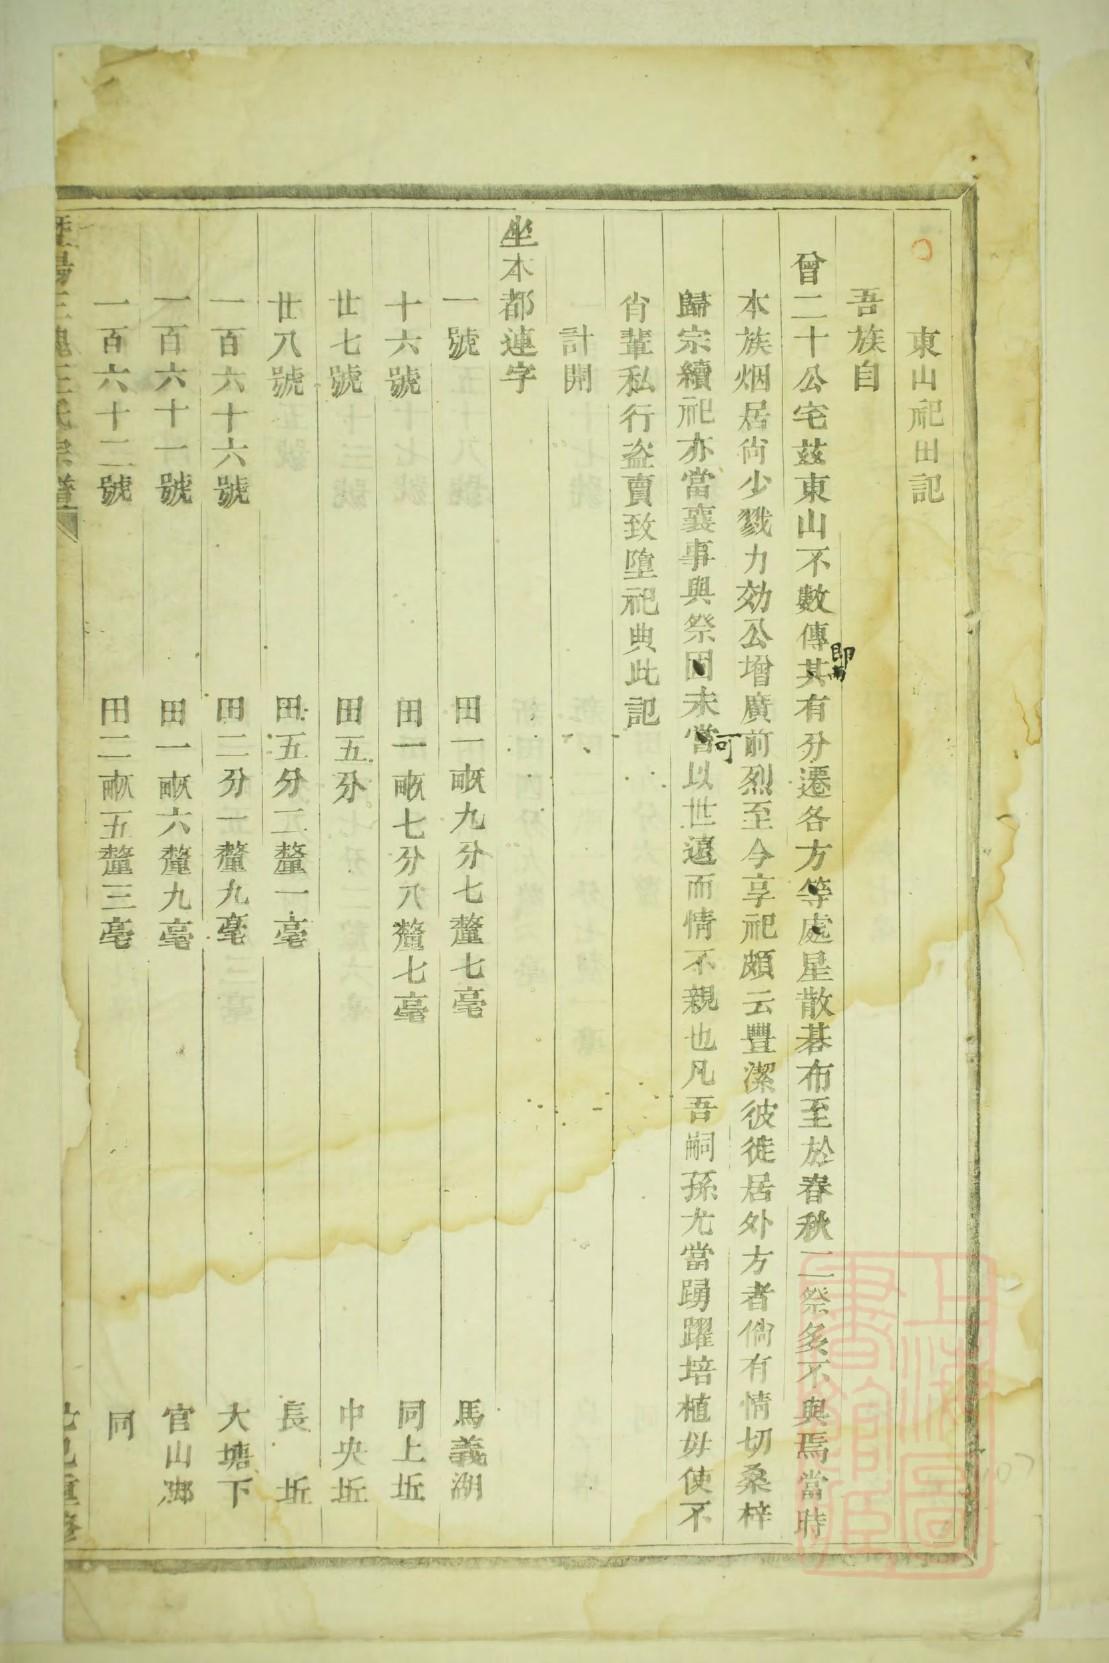 東山祀田記
吾族自
曾二十公宅玆東山不數傳其有分遷各方等處星散碁布至於春秋二祭多不與焉當時
即
本族烟居尙少戮力効公增廣前烈至今享祀頗云豐潔彼徙居外方者倘有情切桑梓
歸宗續祀亦當襄事與祭田未當以世遠而情不親也凡吾嗣孫尤當踴躍培植毋使不
可
肖輩私行盜賣致墮祀典此記
計開
坐本都連字
一號 田一畝九分七釐七毫 馬義湖
十六號 田一畝七分八釐七毫 同上坵
廿七號 田五分 中央坵
廿八號 田五分二釐一毫 長坵
一百六十六號 田二分一釐九毫 大塘下
一百六十一號 田一畝六釐九毫 官山𨛦
一百六十二號 田二畝五釐三毫 同
王氏宗譜
己重修
上海圖書館藏